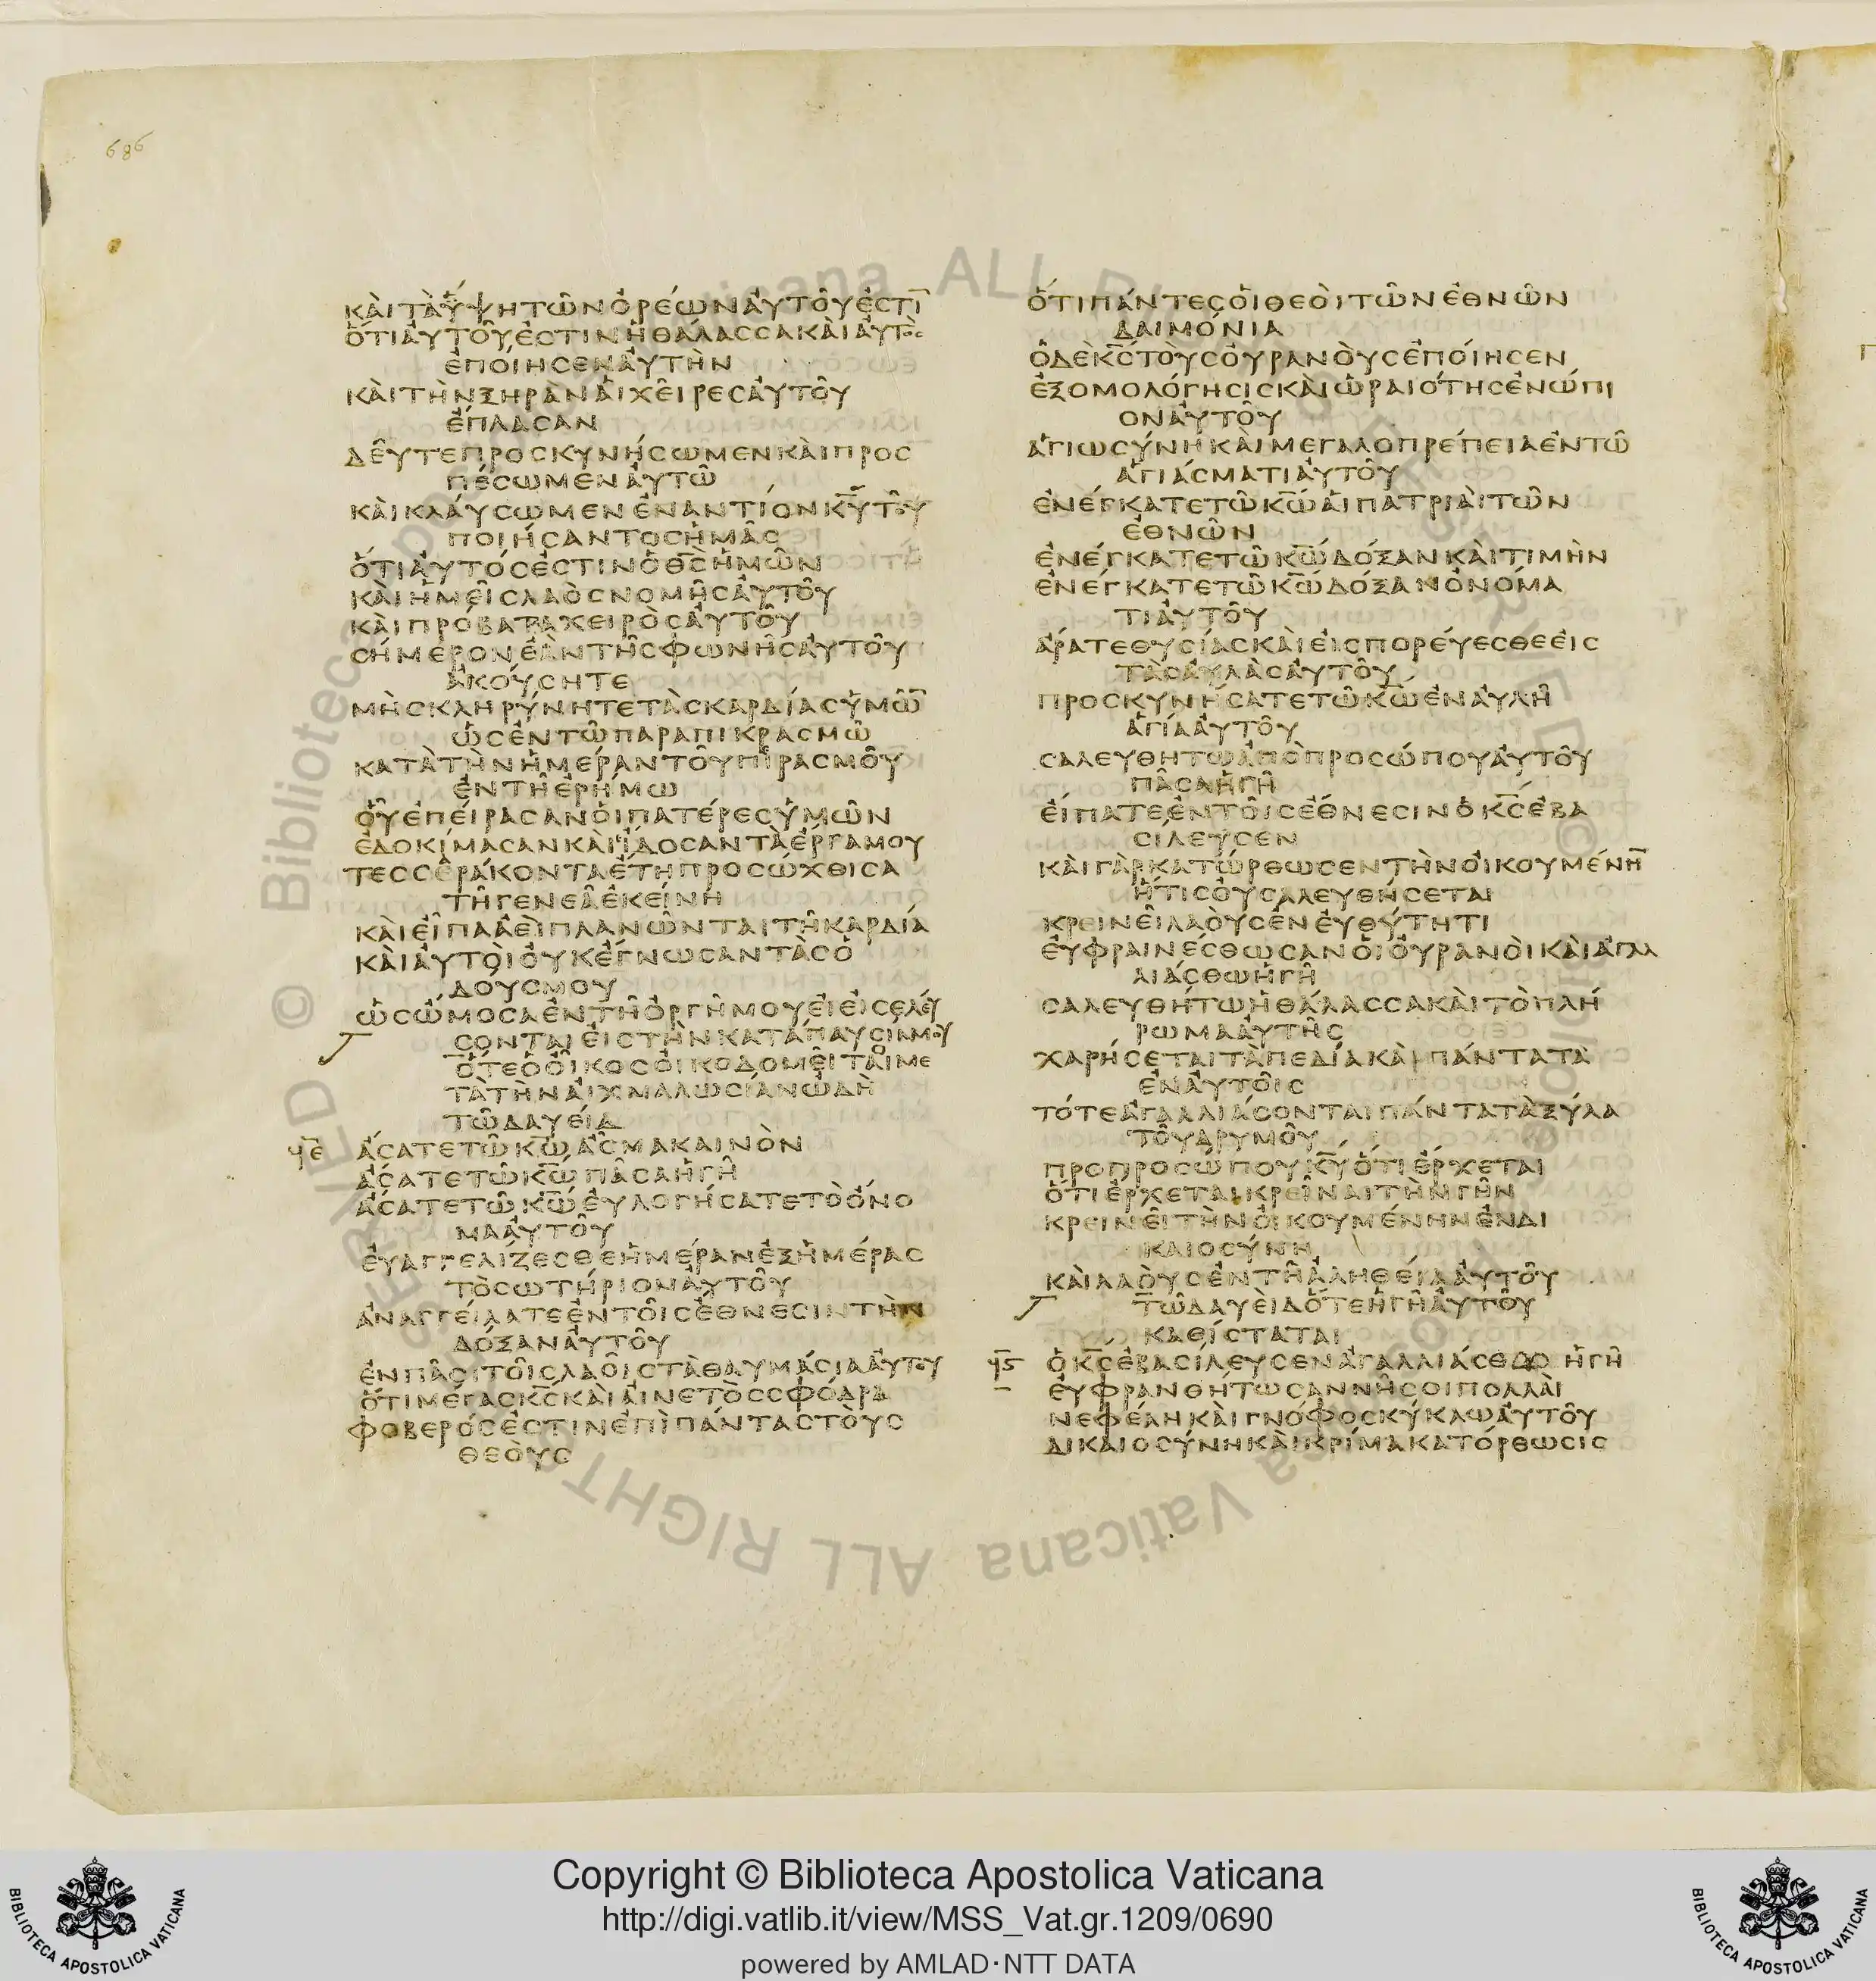 686
ΚΑῚ ΤᾺ ὝΨΗ ΤΩ͂Ν ὈΡΈΩΝ ἈΥΤΟΥ͂ ἘΣΤΙ̅
ὍΤΙ ἈΥΤΟΥ͂ ἘΣΤΙΝ Ἡ ΘΆΛΑΣΣΑ ΚΑῚ ἈΥΤῸΣ
ἘΠΟΊΗΣΕΝ ἈΥΤῊΝ
ΚΑῚ ΤῊΝ ΞΗΡᾺΝ ἉΙ ΧΕΙ͂ΡΕΣ ἈΥΤΟΥ͂
ἜΠΛΑΣΑΝ
ΔΕΥ͂ΤΕ ΠΡΟΣΚΥΝΉΣΩΜΕΝ ΚΑῚ ΠΡΟΣ
ΠΈΣΩΜΕΝ ἈΥΤΩ͂
ΚΑῚ ΚΛΑΎΣΩΜΕΝ ἘΝΑΝΤΊΟΝ Κ̅Υ̅ ΤΟΥ͂
ΠΟΙΉΣΑΝΤΟΣ ἩΜΑ͂Σ
ὍΤΙ ἈΥΤΌΣ ἘΣΤΙΝ Ὁ Θ̅Σ̅ ἩΜΩ͂Ν
ΚΑῚ ἩΜΕΙ͂Σ ΛΑῸΣ ΝΟΜΗ͂Σ ἈΥΤΟΥ͂
ΚΑῚ ΠΡΌΒΑΤΑ ΧΕΙΡῸΣ ἈΥΤΟΥ͂
ΣΉΜΕΡΟΝ ἘᾺΝ ΤΗ͂Σ ΦΩΝΗ͂Σ ἈΥΤΟΥ͂
ἈΚΟΎΣΗΤΕ
ΜῊ ΣΚΛΗΡΎΝΗΤΕ ΤᾺΣ ΚΑΡΔΊΑΣ ὙΜΩ̅
ὩΣ ἘΝ ΤΩ͂ ΠΑΡΑΠΙΚΡΑΣΜΩ͂
ΚΑΤᾺ ΤῊΝ ἩΜΈΡΑΝ ΤΟΥ͂ ΠΙΡΑΣΜΟΥ͂
ἘΝ ΤΗ͂ ἘΡΉΜΩ
ὉΥ͂ ἘΠΕΊΡΑΣΑΝ ὉΙ ΠΑΤΈΡΕΣ ὙΜΩ͂Ν
ἘΔΟΚΊΜΑΣΑΝ ΚΑῚ ἼΔΟΣΑΝ ΤᾺ ἜΡΓΑ ΜΟΥ
ΤΕΣΣΕΡΆΚΟΝΤΑ ἜΤΗ ΠΡΟΣΏΧΘΙΣΑ
ΤΗ͂ ΓΕΝΕΑ͂ ἘΚΕΊΝΗ
ΚΑῚ ΕἾΠΑ ἈΕῚ ΠΛΑΝΩ͂ΝΤΑΙ ΤΗ͂ ΚΑΡΔΊΑ
ΚΑῚ ἈΥΤΟῚ ὈΥΚ ἜΓΝΩΣΑΝ ΤᾺΣ Ὁ
ΔΟΥΣ ΜΟΥ
ὩΣ ὬΜΟΣΑ ἘΝ ΤΗ͂ ὈΡΓΗ͂ ΜΟΥ ἘΙ ἘΙΣΕΛΕΎ
ΣΟΝΤΑΙ ἘΙΣ ΤῊΝ ΚΑΤΆΠΑΥΣΊΝ ΜΟΥ
ὍΤΕ Ὁ ὈΙ͂ΚΟΣ ὈΙΚΟΔΟΜΕΙ͂ΤΑΙ ΜΕ
ΤᾺ ΤῊΝ ἈΙΧΜΑΛΩΣΊΑΝ ὨΔῊ
ΤΩ͂ ΔΑΥΕΊΔ
ϤΕ̅ ἌΣΑΤΕ ΤΩ͂ Κ̅Ω̅ Ἆ͂ΣΜΑ ΚΑΙΝῸΝ
ἌΣΑΤΕ ΤΩ͂ Κ̅Ω̅ ΠΑ͂ΣΑ Ἡ ΓΗ͂
ἌΣΑΤΕ ΤΩ͂ Κ̅Ω̅ ἘΥΛΟΓΉΣΑΤΕ ΤῸ ὌΝΟ
ΜΑ ἈΥΤΟΥ͂
ἘΥΑΓΓΕΛΊΖΕΣΘΕ ἩΜΈΡΑΝ ἘΞ ἩΜΈΡΑΣ
ΤῸ ΣΩΤΉΡΙΟΝ ἈΥΤΟΥ͂
ἈΝΑΓΓΕΊΛΑΤΕ ἘΝ ΤΟΙ͂Σ ἜΘΝΕΣΙΝ ΤῊΝ
ΔΌΞΑΝ ἈΥΤΟΥ͂
ἘΝ ΠΑ͂ΣΙ ΤΟΙ͂Σ ΛΑΟΙ͂Σ ΤᾺ ΘΑΥΜΆΣΙΑ ἈΥΤΟΥ
ὍΤΙ ΜΈΓΑΣ Κ̅Σ̅ ΚΑῚ ἈΙΝΕΤῸΣ ΣΦΌΔΡΑ
ΦΟΒΕΡΌΣ ἘΣΤΙΝ ἘΠῚ ΠΆΝΤΑΣ ΤΟῪΣ
ΘΕΟῪΣ
ὍΤΙ ΠΆΝΤΕΣ ὉΙ ΘΕΟῚ ΤΩ͂Ν ἘΘΝΩ͂Ν
ΔΑΙΜΌΝΙΑ
Ὁ ΔῈ Κ̅Σ̅ ΤΟῪΣ ὈΥΡΑΝΟῪΣ ἘΠΟΊΗΣΕΝ
ἘΞΟΜΟΛΌΓΗΣΙΣ ΚΑῚ ὩΡΑΙΌΤΗΣ ἘΝΏΠΙ
ΟΝ ἈΥΤΟΥ͂
ἉΓΙΩΣΎΝΗ ΚΑῚ ΜΕΓΑΛΟΠΡΈΠΕΙΑ ἘΝ ΤΩ͂
ἉΓΙΆΣΜΑΤΙ ἈΥΤΟΥ͂
ἘΝΈΓΚΑΤΕ ΤΩ͂ Κ̅Ω̅ ἉΙ ΠΑΤΡΙΑῚ ΤΩ͂Ν
ἘΘΝΩ͂Ν
ἘΝΈΓΚΑΤΕ ΤΩ͂ Κ̅Ω̅ ΔΌΞΑΝ ΚΑῚ ΤΙΜῊΝ
ἘΝΈΓΚΑΤΕ ΤΩ͂ Κ̅Ω̅ ΔΌΞΑΝ ὈΝΌΜΑ
ΤΙ ἈΥΤΟΥ͂
ἌΡΑΤΕ ΘΥΣΊΑΣ ΚΑῚ ἘΙΣΠΟΡΕΎΕΣΘΕ ἘΙΣ
ΤᾺΣ ἈΥΛᾺΣ ἈΥΤΟΥ͂
ΠΡΟΣΚΥΝΉΣΑΤΕ ΤΩ͂ Κ̅Ω̅ ἘΝ ἈΥΛΗ͂
ἉΓΊΑ ἈΥΤΟΥ͂
ΣΑΛΕΥΘΗΤΩ ἈΠῸ ΠΡΟΣΏΠΟΥ ἈΥΤΟΥ͂
ΠΑ͂ΣΑ Ἡ ΓΗ͂
ἘΊΠΑΤΕ ἘΝ ΤΟΙ͂Σ ἜΘΝΕΣΙΝ Ὁ Κ̅Σ̅ ἘΒΑ
ΣΊΛΕΥΣΕΝ
ΚΑῚ ΓᾺΡ ΚΑΤΏΡΘΩΣΕΝ ΤῊΝ ὈΙΚΟΥΜΈΝΗ̅
ἭΤΙΣ ὈΥ ΣΑΛΕΥΘΉΣΕΤΑΙ
ΚΡΙΝΕΙ͂ ΛΑΟῪΣ ἘΝ ἘΥΘΎΤΗΤΙ
ἘΥΦΡΑΙΝΈΣΘΩΣΑΝ ὉΙ ὈΥΡΑΝΟῚ ΚΑῚ ἈΓΑΛ
ΛΙΆΣΘΩ Ἡ ΓΗ͂
ΣΑΛΕΥΘΉΤΩ Ἡ ΘΆΛΑΣΣΑ ΚΑῚ ΤῸ ΠΛΉ
ΡΩΜΑ ἈΥΤΗ͂Σ
ΧΑΡΉΣΕΤΑΙ ΤᾺ ΠΕΔΊΑ ΚΑῚ ΠΆΝΤΑ ΤᾺ
ἘΝ ἈΥΤΟΙ͂Σ
ΤΌΤΕ ἈΓΑΛΛΙΆΣΟΝΤΑΙ ΠΆΝΤΑ ΤᾺ ΞΎΛΑ
ΤΟΥ͂ ΔΡΥΜΟΥ͂
ΠΡΟ ΠΡΟΣΏΠΟΥ Κ̅Υ̅ ὍΤΙ ἘΡΧΕΤΑΙ
ὍΤΙ ἜΡΧΕΤΑΙ ΚΡΕΙ͂ΝΑΙ ΤῊΝ ΓΗ͂Ν
ΚΡΕΙΝΕΙ͂ ΤῊΝ ὈΙΚΟΥΜΈΝΗΝ ἘΝ ΔΙ
ΚΑΙΟΣΎΝΗ
ΚΑῚ ΛΑΟῪΣ ἘΝ ΤΗ͂ ἈΛΗΘΕΊΑ ἈΥΤΟΥ͂
ΤΩ͂ ΔΑΥΕῚΔ ὍΤΕ Ἡ ΓΗ͂ ἈΥΤΟΥ͂
ΚΑΘΊΣΤΑΤΑΙ
ϤϚ̅ Ὁ Κ̅Σ̅ ἘΒΑΣΊΛΕΥΣΕΝ ἈΓΑΛΛΙΆΣΘΩ Ἡ ΓΗ͂
ἘΥΦΡΑΝΘΉΤΩΣΑΝ ΝΗ͂ΣΟΙ ΠΟΛΛΑῚ
ΝΕΦΈΛΗ ΚΑῚ ΓΝΌΦΟΣ ΚΎΚΛΩ ἈΥΤΟΥ͂
ΔΙΚΑΙΟΣΎΝΗ ΚΑῚ ΚΡΊΜΑ ΚΑΤΌΡΘΩΣΙΣ
Copyright © Biblioteca Apostolica Vaticana
http://digi.vatlib.it/view/MSS_Vat.gr.1209/0690
powered by AMLAD·NTT DATA
BIBLIOTECA APOSTOLICA VATICANA
BIBLIOTECA APOSTOLICA VATICANA